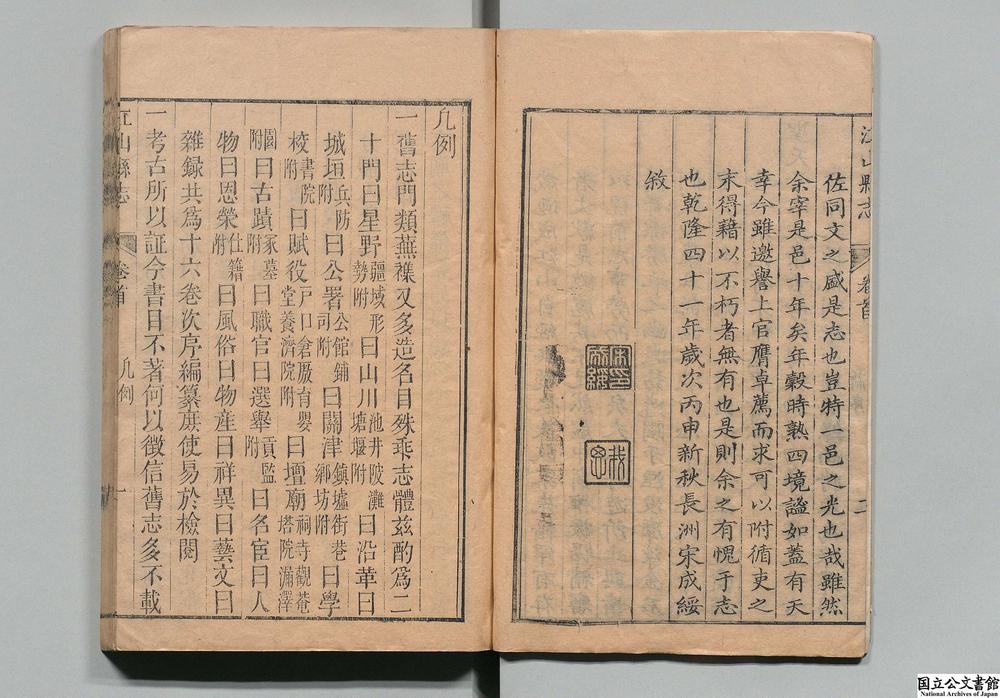 江山縣志
卷首
二
佐同文之盛是志也豈特一邑之光也哉雖然
余宰是邑十年矣年穀時熟四境謐如蓋有天
幸今雖邀譽上官膺卓薦而求可以附循吏之
末得藉以不朽者無有也是則余之有愧于志
也乾隆四十一年歲次丙申新秋長洲宋成綏
敘
凡例
一舊志門類蕪襍又多造名目殊乖志體兹酌為二
十門曰星野疆域形勢附曰山川池井陂灘塘堰附曰沿革曰
城垣兵防附曰公署公館鋪司附曰關津鎮墟街巷鄉坊附曰學
校書院附曰賦役戶口倉厫育嬰堂養濟院附曰壇廟祠寺觀菴塔院漏澤
園附曰古蹟冢墓附曰職官曰選舉貢監附曰名宦曰人
物曰恩榮仕籍附曰風俗曰物産曰祥異曰藝文曰
雜録共為十六卷次序編纂庶使易於檢閱
一考古所以証今書目不著何以徵信舊志多不載
江山縣志
卷首
凡例
一
国立公文書館
National Archives of Japan